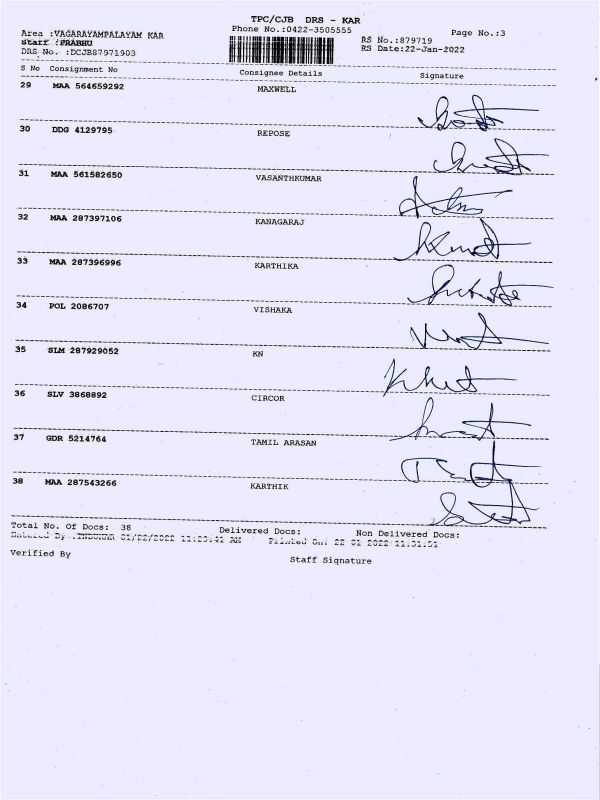 TPC/CJB DRS - KAR
Area :VAGARAYAMPALAYAM KAR Phone No.:0422-3505555 Page No.:3
Staff :PRABHU RS No.:879719
DRS No. :DCJB87971903 RS Date:22-Jan-2022
S No Consignment No Consignee Details Signature
29 MAA 564659292 MAXWELL
30 DDG 4129795 REPOSE
31 MAA 561582650 VASANTHKUMAR
32 MAA 287397106 KANAGARAJ
33 MAA 287396996 KARTHIKA
34 POL 2086707 VISHAKA
35 SLM 287929052 KN
36 SLV 3868892 CIRCOR
37 GDR 5214764 TAMIL ARASAN
38 MAA 287543266 KARTHIK
Total No. Of Docs: 38 Delivered Docs: Non Delivered Docs:
Entered By 01/22/2022 11:29:41 AM Printed On: 22 01 2022 11:31:51
Verified By Staff Signature